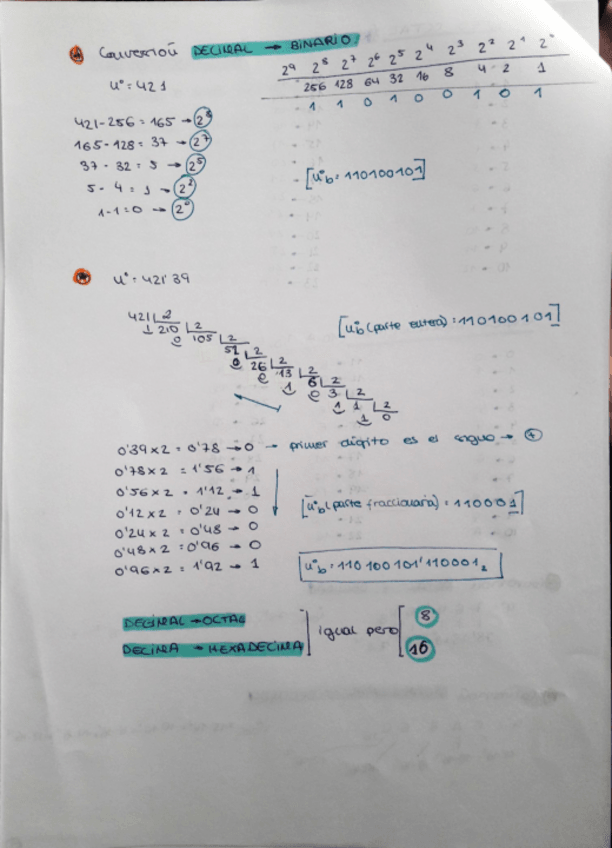 Conversión DECIMAL → BINARIO
2⁹ 2⁸ 2⁷ 2⁶ 2⁵ 2⁴ 2³ 2² 2¹ 2⁰
256 128 64 32 16 8 4 2 1
1 1 0 1 0 0 1 0 1
nº = 421
421-256 = 165 → 2⁸
165-128 = 37 → 2⁷
37 - 32 = 5 → 2⁵
5 - 4 = 1 → 2²
1-1 = 0 → 2⁰
[nºb = 110100101]
nº = 421'39
421 2
1 210 2
0 105 2
51 2
0 26 2
0 13 2
1 6 2
0 3 2
1 1 2
1 0
[nºb (parte entera) = 110100101]
0'39x2 = 0'78 → 0 → primer dígito es el signo → +
0'78x2 = 1'56 → 1
0'56x2 = 1'12 → 1
0'12x2 = 0'24 → 0
0'24x2 = 0'48 → 0
0'48x2 = 0'96 → 0
0'96x2 = 1'92 → 1
[nºb (parte fraccionaria) = 110001]
nºb = 110100101'110001₂
DECIMAL → OCTAL
DECIMA → HEXADECIMA
igual pero
8
16